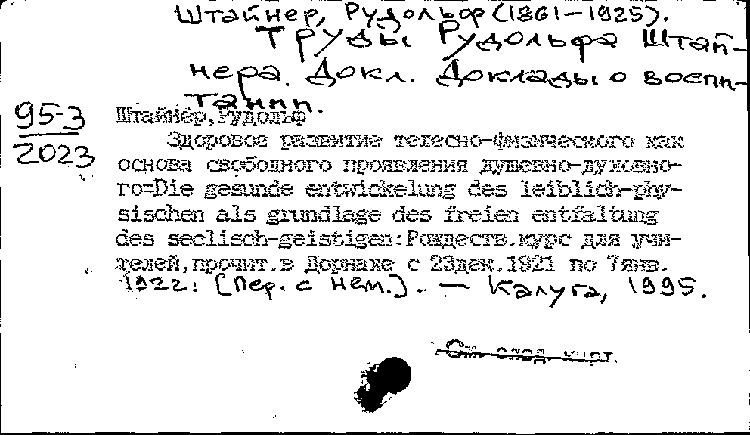 Штайнер, Рудольф (1861-1925).
Труды Рудольфа Штай-
нера. Докл. Доклады о воспи-
тании.
95-3
2023
Штайнер, Рудольф
Здоровое развитие телесно-физического как
основа свободного проявления душевно-духовно-
го=Die gesunde entwickelung des leiblich-phy-
sischen als grundlage des freien entfaltung
des seelisch-geistigen:Рождеств.курс для учи-
телей,прочит.в Дорнахе с 23дек.1921 по 7янв.
1922: [Пер. с нем.]. — Калуга, 1995.
См. след. карт.